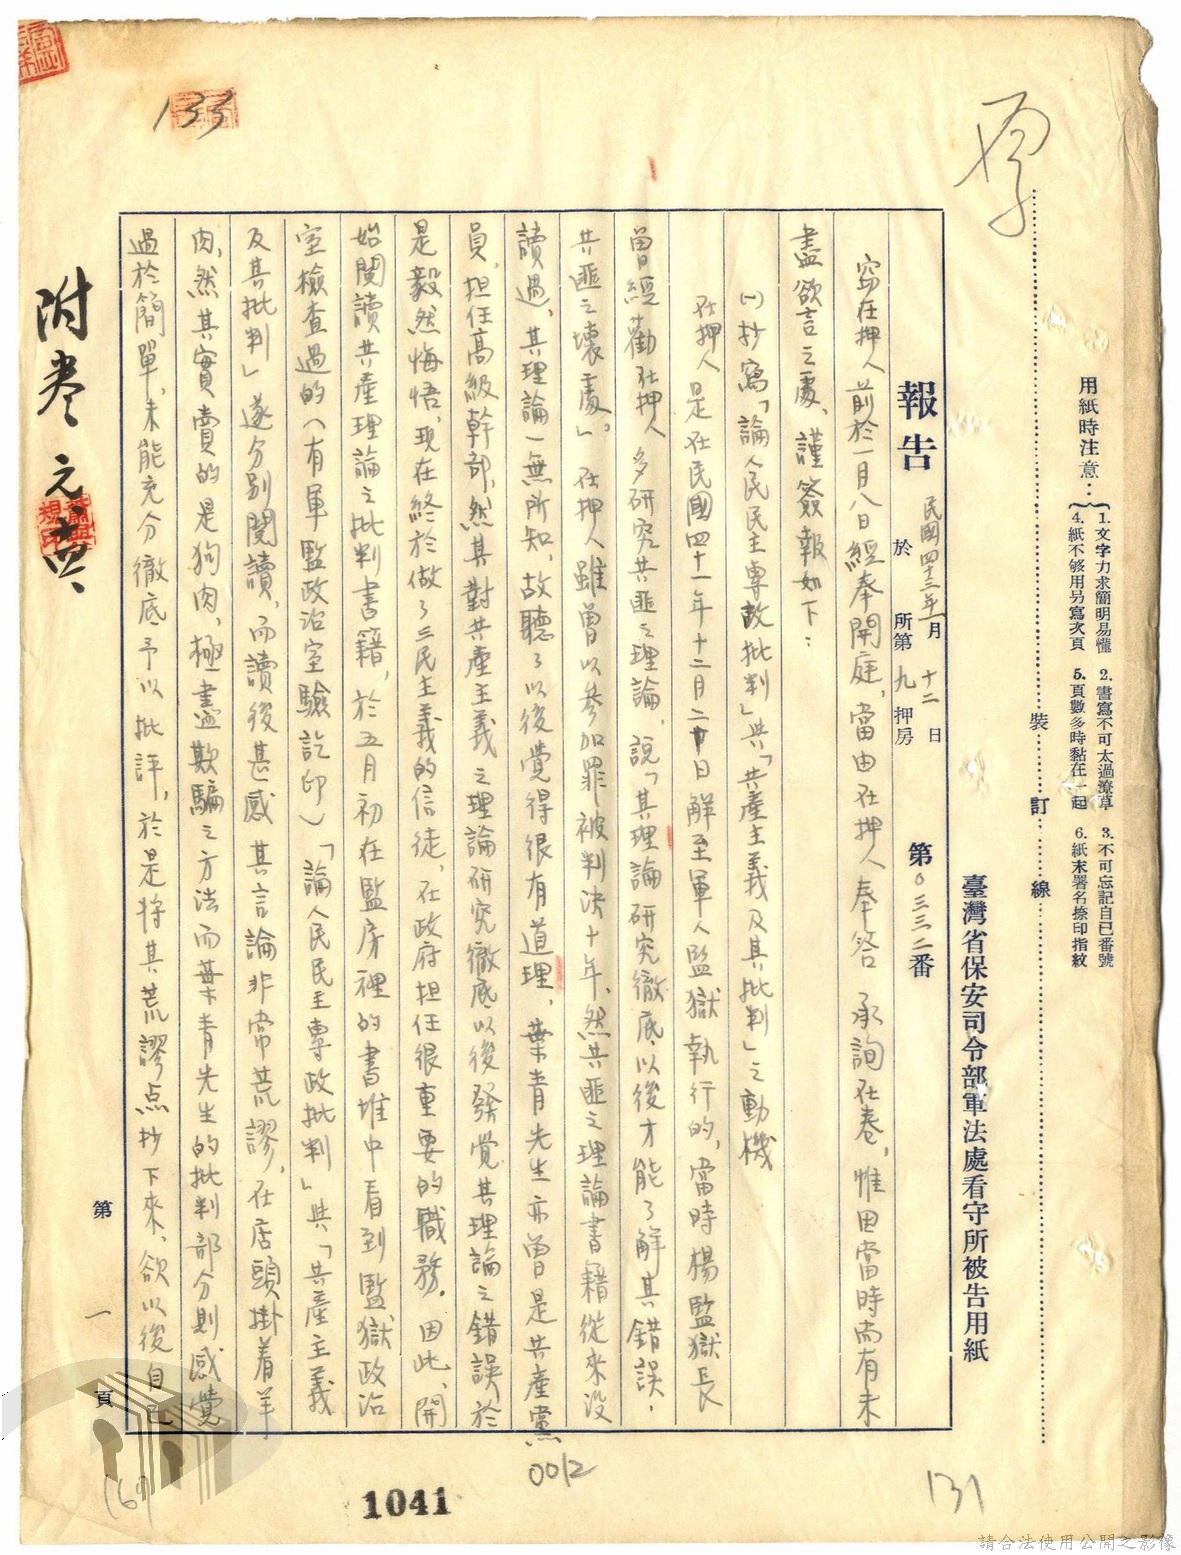 用紙時注意：
1. 文字力求簡明易懂 2. 書寫不可太過潦草 3. 不可忘記自已番號
4. 紙不够用另寫次頁 5. 頁數多時黏在一起 6. 紙末署名捺印指紋
裝 訂 線
臺灣省保安司令部軍法處看守所被告用紙
報告 民國四十三年一月十二日 於 所第九押房 第0三三二番
竊在押人前於一月八日經奉開庭，當由在押人奉答 承詢在卷，惟因當時尚有未
盡欲言之處，謹簽報如下：
(一)抄寫「論人民民主專政批判」共「共產主義及其批判」之動機
在押人是在民國四十一年十二月二十日解至軍人監獄執行的，當時楊監獄長
曾經勸在押人 多研究共匪之理論，說「其理論研究徹底以後才能了解其錯誤，
共匪之壞處」。在押人雖曾以參加罪被判決十年，然共匪之理論書籍從來沒
讀過，其理論一無所知，故聽了以後覺得很有道理，葉青先生亦曾是共產黨
員，担任高級幹部，然其對共產主義之理論研究徹底以後發覺其理論之錯誤，於
是毅然悔悟，現在終於做了三民主義的信徒，在政府担任很重要的職務。因此，開
始閱讀共產理論之批判書籍，於五月初在監房裡的書堆中看到監獄政治
室檢查過的（有軍監政治室驗訖印）「論人民民主專政批判」共「共產主義
及其批判」遂分別閱讀，而讀後甚感其言論非常荒謬，在店頭掛着羊
肉，然其實賣的是狗肉，極盡欺騙之方法而葉青先生的批判部分則感覺
過於簡單，未能充分徹底予以批評，於是將其荒謬点抄下來，欲以後自己
第 一 頁
附卷 元
133
0012
1041
131
請合法使用公開之影像